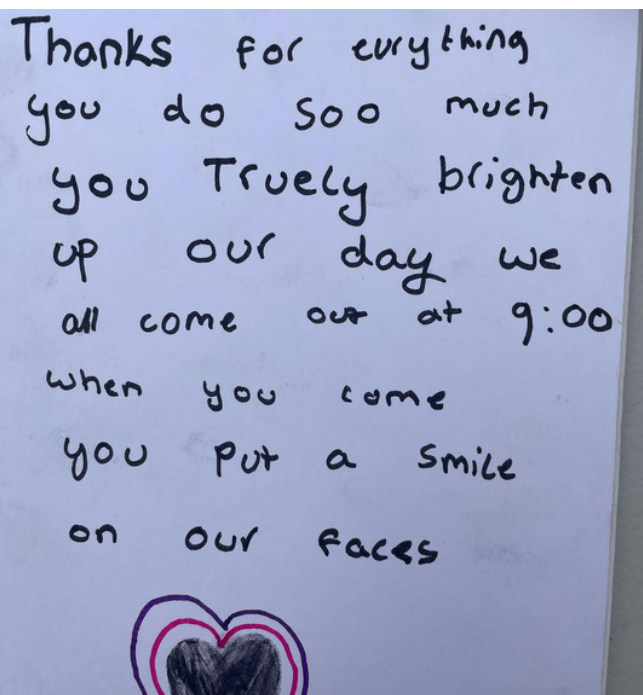 Thanks for eurything
you do soo much
you Truely brighten
up our day we
all come out at 9:00
when you come
you put a smile
on our faces